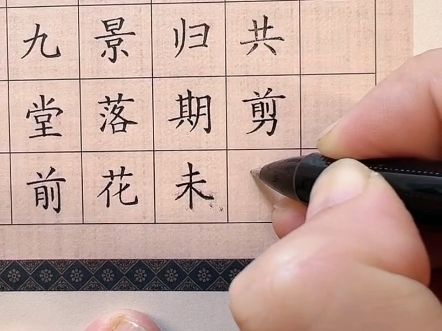 九堂前
景落花
归期未
共剪